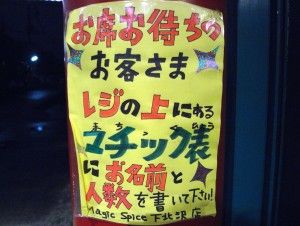 お席お待ちの
お客さま
レジの上にある
マチック表
に お名前と
人数を書いて下さい!
Magic Spice 下北沢店